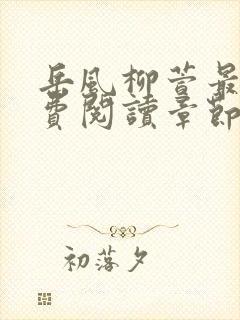 岳風柳萱最
費閱讀章節
初落夕